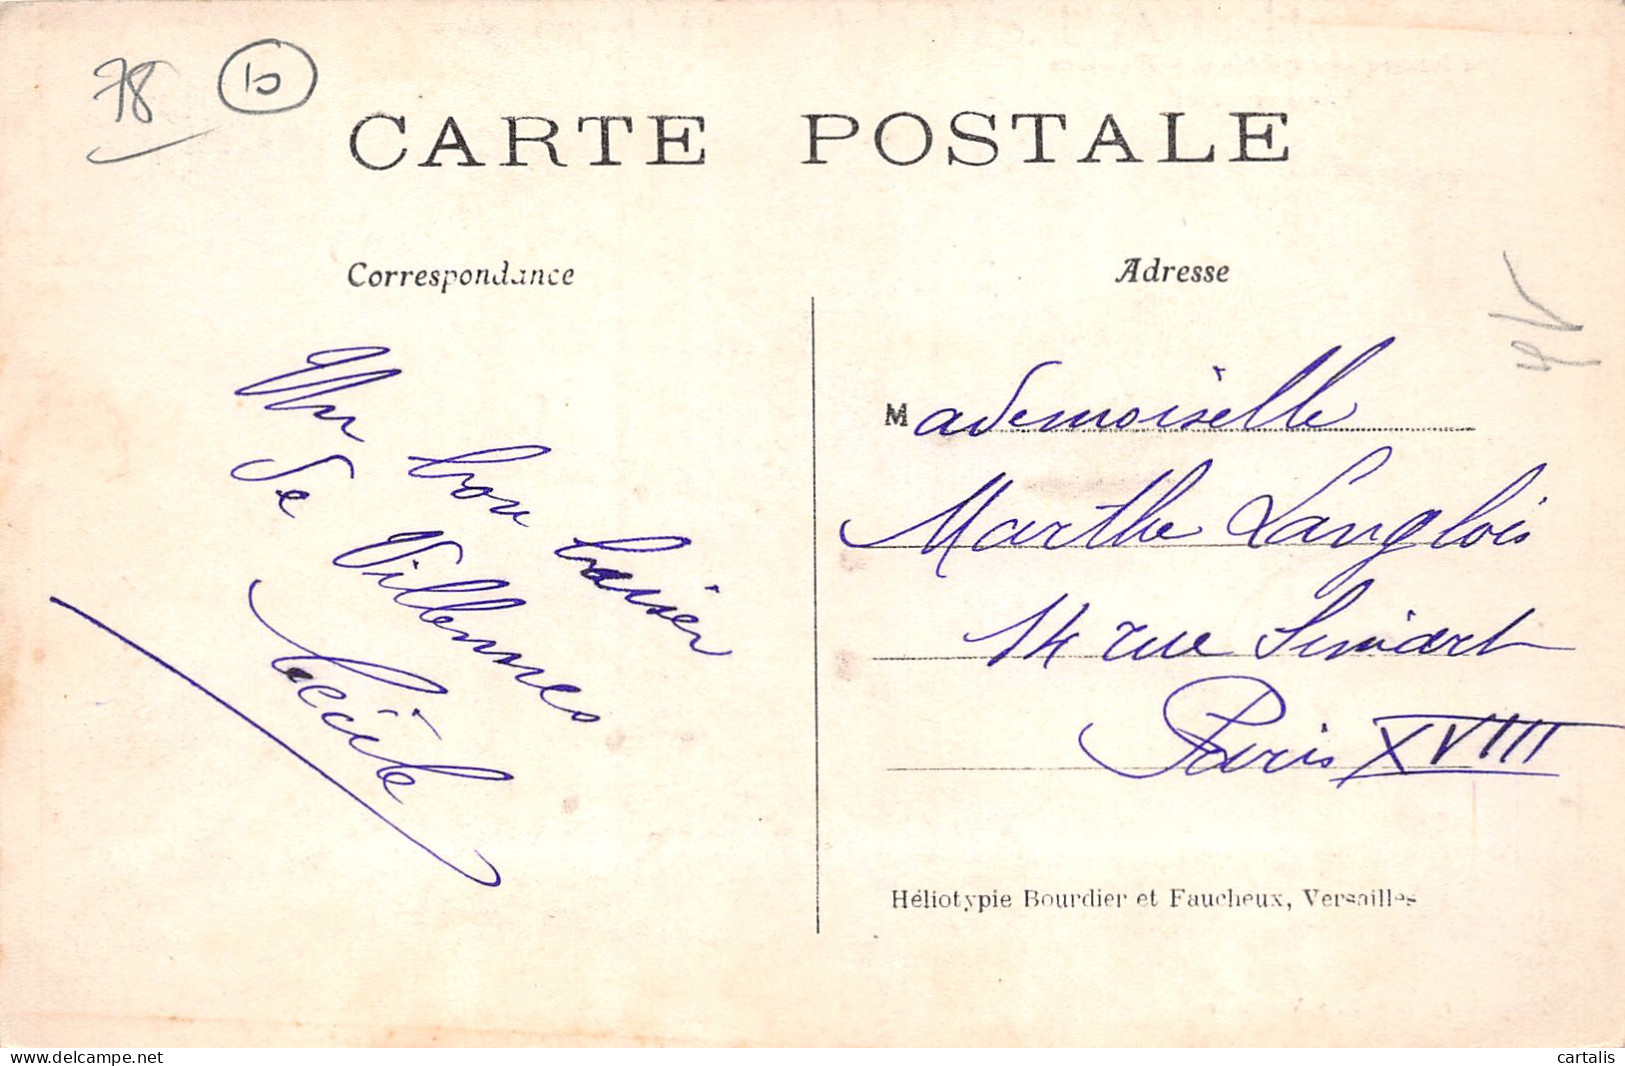 78 10
CARTE POSTALE
Correspondance
Un bon baiser
de Villennes
Cécile
Adresse
Mademoiselle
Marthe Langlois
14 rue Simart
Paris XVIII
Héliotypie Bourdier et Faucheux, Versailles
delcampe.net
cartalis